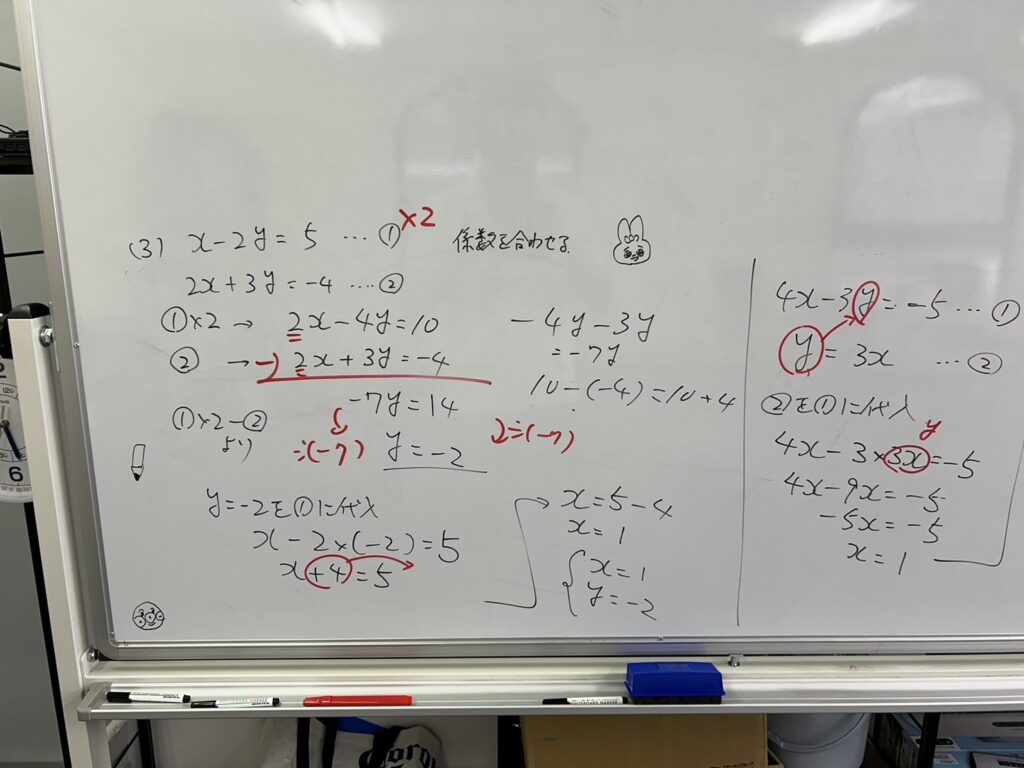 (3) x-2y=5 …① ×2 係数を合わせる
2x+3y=-4 …②
①×2 → 2x-4y=10
② → -) 2x+3y=-4
①×2-② -7y=14
より ÷(-7) y=-2 2÷(-7)
y=-2を①に代入
x-2×(-2)=5
x+4=5
-4y-3y
=-7y
10-(-4)=10+4
x=5-4
x=1
x=1
y=-2
4x-3y=-5 …①
y=3x …②
②を①に代入
y
4x-3×3x=-5
4x-9x=-5
-5x=-5
x=1
6